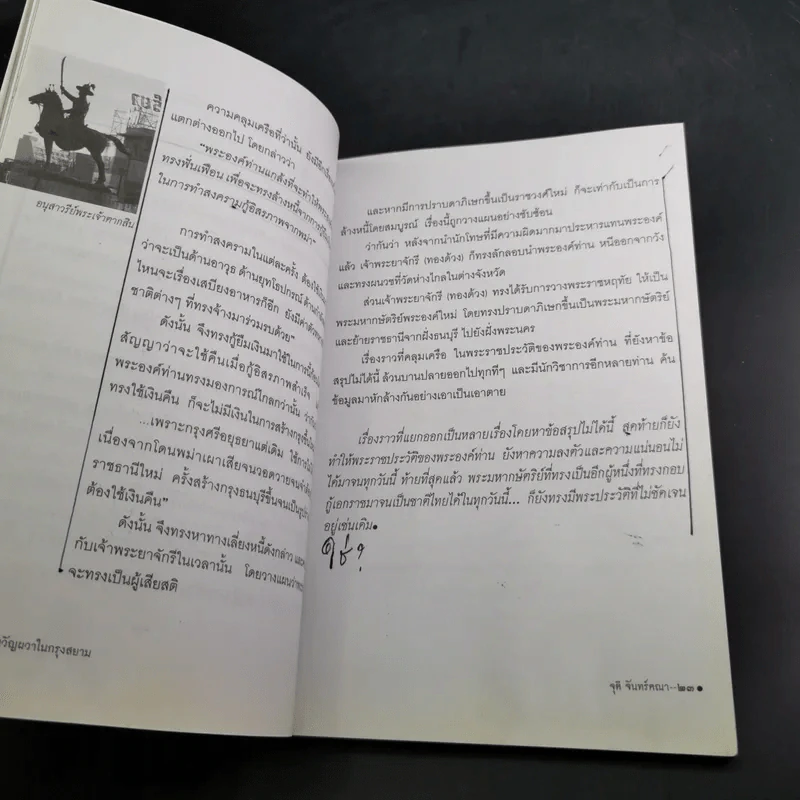 อนุสาวรีย์พระเจ้าตากสิน
ความคลุมเครือที่ว่านั้น
แตกต่างออกไป โดยกล่าวว่า
“พระองค์ท่านแกล้งที่จะทำให้
ทรงฟั่นเฟือน เพื่อจะทรงล้างหนี้จากการกู้
ในการทำสงครามกู้อิสรภาพจากพม่า”
การทำสงครามในแต่ละครั้ง ต้องใช้
ว่าจะเป็นด้านอาวุธ ด้านยุทโธปกรณ์
ไหนจะเรื่องเสบียงอาหารก็อีก ยังมีค่า
ชาติต่างๆ ที่ทรงจ้างมาร่วมรบด้วย”
ดังนั้น จึงทรงกู้ยืมเงินมาใช้ในการนี้
สัญญาว่าจะใช้คืนเมื่อกู้อิสรภาพสำเร็จ
พระองค์ท่านทรงมองการณ์ไกลกว่านั้น
ทรงใช้เงินคืน ก็จะไม่มีเงินในการสร้างกรุง
...เพราะกรุงศรีอยุธยาแต่เดิม ใช้การ
เนื่องจากโดนพม่าเผาเสียจนวอดวายจน
ราชธานีใหม่ ครั้งสร้างกรุงธนบุรีขึ้นจนเป็น
ต้องใช้เงินคืน”
ดังนั้น จึงทรงหาทางเลี่ยงหนี้ดังกล่าว
กับเจ้าพระยาจักรีในเวลานั้น โดยวางแผนว่า
จะทรงเป็นผู้เสียสติ
ขวัญผวาในกรุงสยาม
และหากมีการปราบดาภิเษกขึ้นเป็นราชวงศ์ใหม่ ก็จะเท่ากับเป็นการ
ล้างหนี้โดยสมบูรณ์ เรื่องนี้ถูกวางแผนอย่างซับซ้อน
ว่ากันว่า หลังจากนำนักโทษที่มีความผิดมากมาประหารแทนพระองค์
แล้ว เจ้าพระยาจักรี (ทองด้วง) ก็ทรงลักลอบนำพระองค์ท่าน หนีออกจากวัง
และทรงผนวชที่วัดห่างไกลในต่างจังหวัด
ส่วนเจ้าพระยาจักรี (ทองด้วง) ทรงได้รับการวางพระราชหฤทัย ให้เป็น
พระมหากษัตริย์พระองค์ใหม่ โดยทรงปราบดาภิเษกขึ้นเป็นพระมหากษัตริย์
และย้ายราชธานีจากฝั่งธนบุรี ไปยังฝั่งพระนคร
เรื่องราวที่คลุมเครือ ในพระราชประวัติของพระองค์ท่าน ที่ยังหาข้อ
สรุปไม่ได้นี้ ล้วนบานปลายออกไปทุกทีๆ และมีนักวิชาการอีกหลายท่าน ค้น
ข้อมูลมาหักล้างกันอย่างเอาเป็นเอาตาย
เรื่องราวที่แยกออกเป็นหลายเรื่องโดยหาข้อสรุปไม่ได้นี้ สุดท้ายก็ยัง
ทำให้พระราชประวัติของพระองค์ท่าน ยังหาความลงตัวและความแน่นอนไม่
ได้มาจนทุกวันนี้ ท้ายที่สุดแล้ว พระมหากษัตริย์ที่ทรงเป็นอีกผู้หนึ่งที่ทรงกอบ
กู้เอกราชมาจนเป็นชาติไทยได้ในทุกวันนี้... ก็ยังทรงมีพระประวัติที่ไม่ชัดเจน
อยู่เช่นเดิม
ใช่?
จุติ จันทร์คณา--๒๓